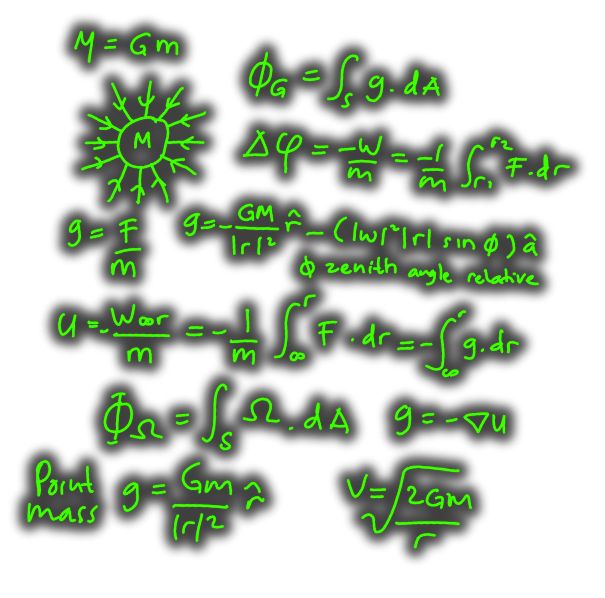 M = Gm
ϕ_G = ∫_S g. dA
M
Δφ = -W/m = -1/m ∫_r₁^r₂ F. dr
g = F/m
g = - GM/|r|² r̂ - (|w|²|r| sin ϕ) â
ϕ zenith angle relative
U = - W∞r/m = - 1/m ∫_∞^r F . dr = - ∫_∞^r g. dr
Φ_Ω = ∫_S Ω. dA
g = -∇u
Point
mass
g = Gm/|r|² r̂
V = √(2Gm/r)